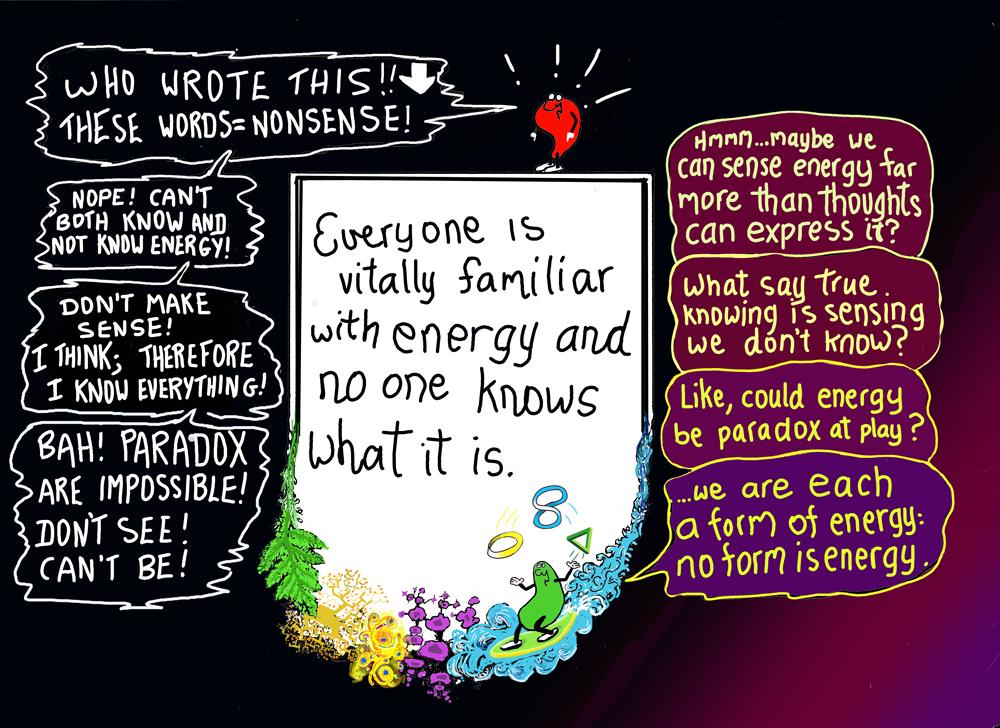 WHO WROTE THIS!!
THESE WORDS=NONSENSE!
NOPE! CAN'T
BOTH KNOW AND
NOT KNOW ENERGY!
DON'T MAKE
SENSE!
I THINK; THEREFORE
I KNOW EVERYTHING!
BAH! PARADOX
ARE IMPOSSIBLE!
DON'T SEE!
CAN'T BE!
Everyone is
vitally familiar
with energy and
no one knows
what it is.
Hmmm...maybe we
can sense energy far
more than thoughts
can express it?
What say true
knowing is sensing
we don't know?
Like, could energy
be paradox at play?
...we are each
a form of energy:
no form is energy.